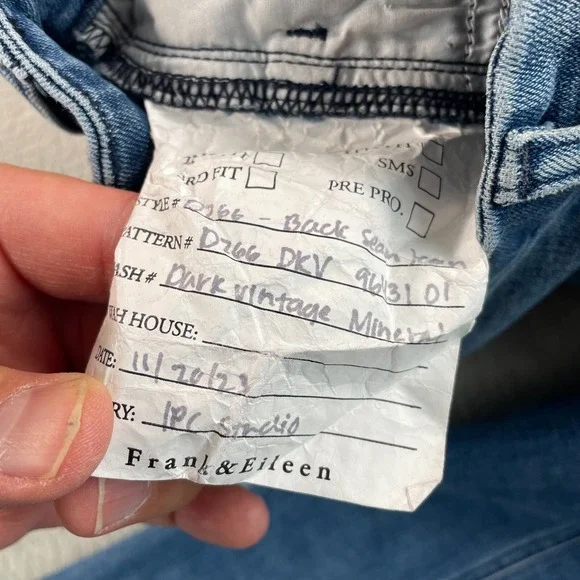 SMS
RD FIT
PRE PRO.
STYLE # D266 - Back Seam Jean
PATTERN# D266 DKV 963101
ASH# Dark vintage Mineral
SH HOUSE:
DATE: 11/20/23
RY: IPC Studio
Frank & Eileen